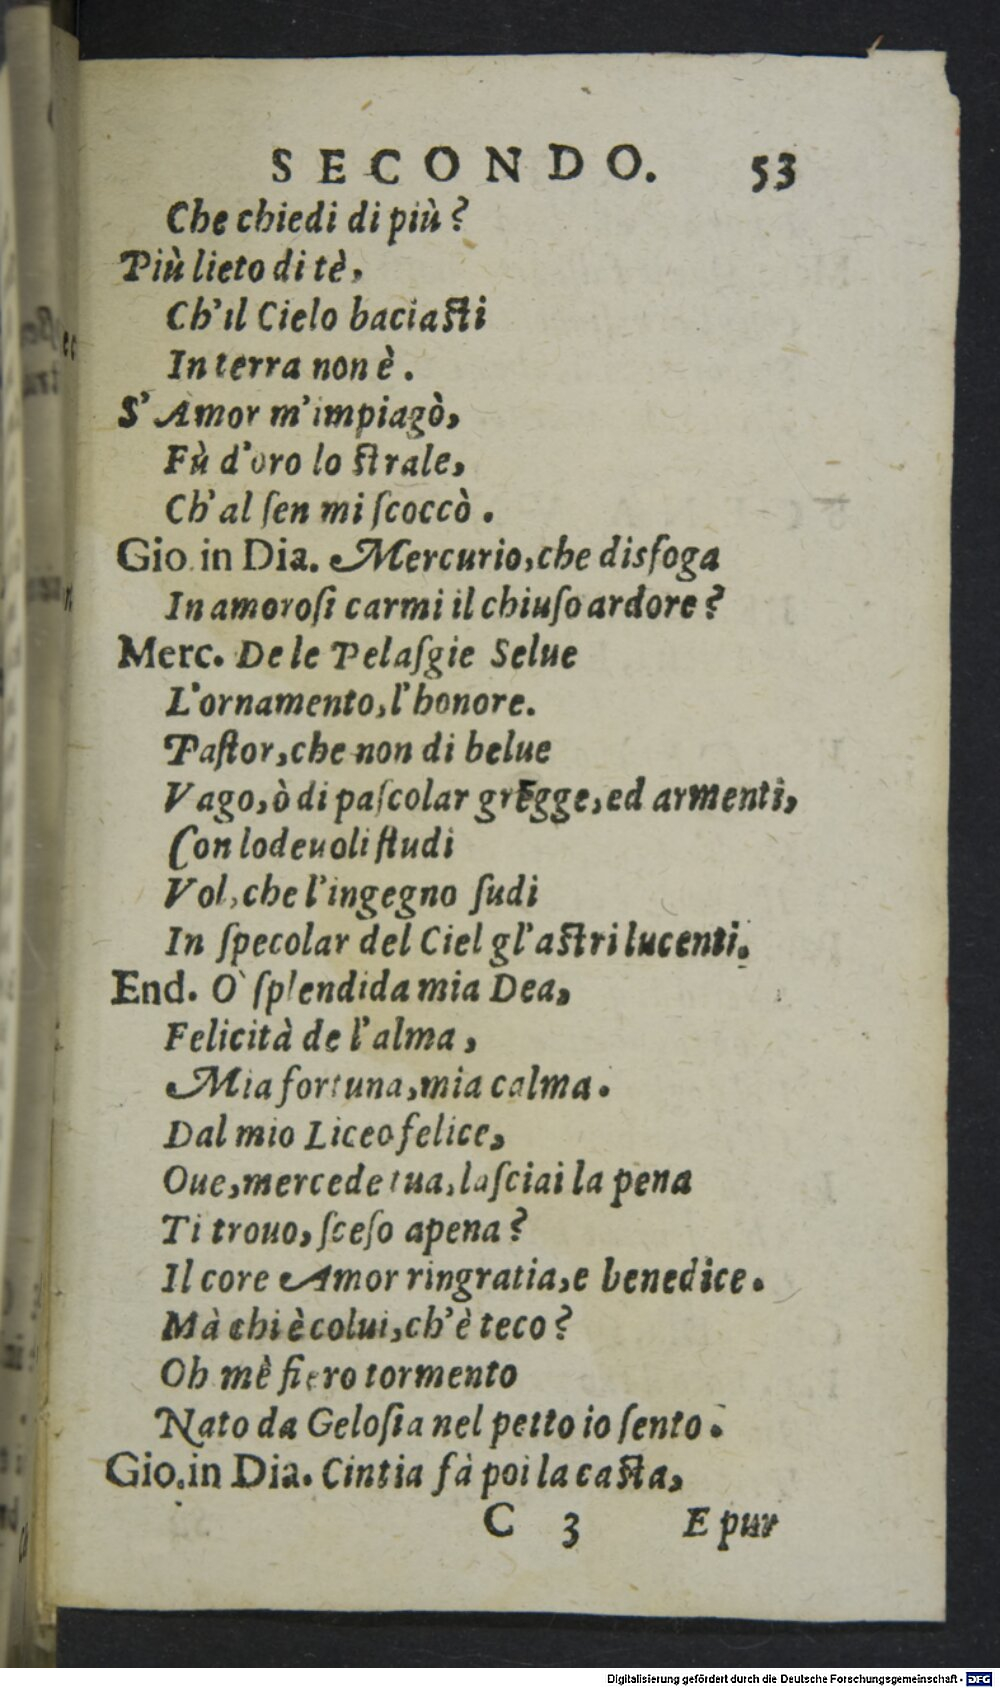 SECONDO. 53
Che chiedi di più?
Più lieto di tè,
Ch'il Cielo baciaſti
In terra non è.
S'Amor m'impiagò,
Fù d'oro lo ſtrale,
Ch'al ſen mi ſcoccò.
Gio. in Dia. Mercurio, che disfoga
In amoroſi carmi il chiuſo ardore?
Merc. De le Pelaſgie Selue
L'ornamento, l'honore.
Paſtor, che non di belue
Vago, ò di paſcolar gregge, ed armenti,
Con lodeuoli ſtudi
Vol, che l'ingegno ſudi
In ſpecolar del Ciel gl'aſtri lucenti.
End. O' ſplendida mia Dea,
Felicità de l'alma,
Mia fortuna, mia calma.
Dal mio Liceo felice,
Oue, mercede tua, laſciai la pena
Ti trouo, ſceſo apena?
Il core Amor ringratia, e benedice.
Mà chi è colui, ch'è teco?
Oh mè fiero tormento
Nato da Geloſia nel petto io ſento.
Gio. in Dia. Cintia fà poi la caſta,
C 3 E pur
Digitalisierung gefördert durch die Deutsche Forschungsgemeinschaft - DFG